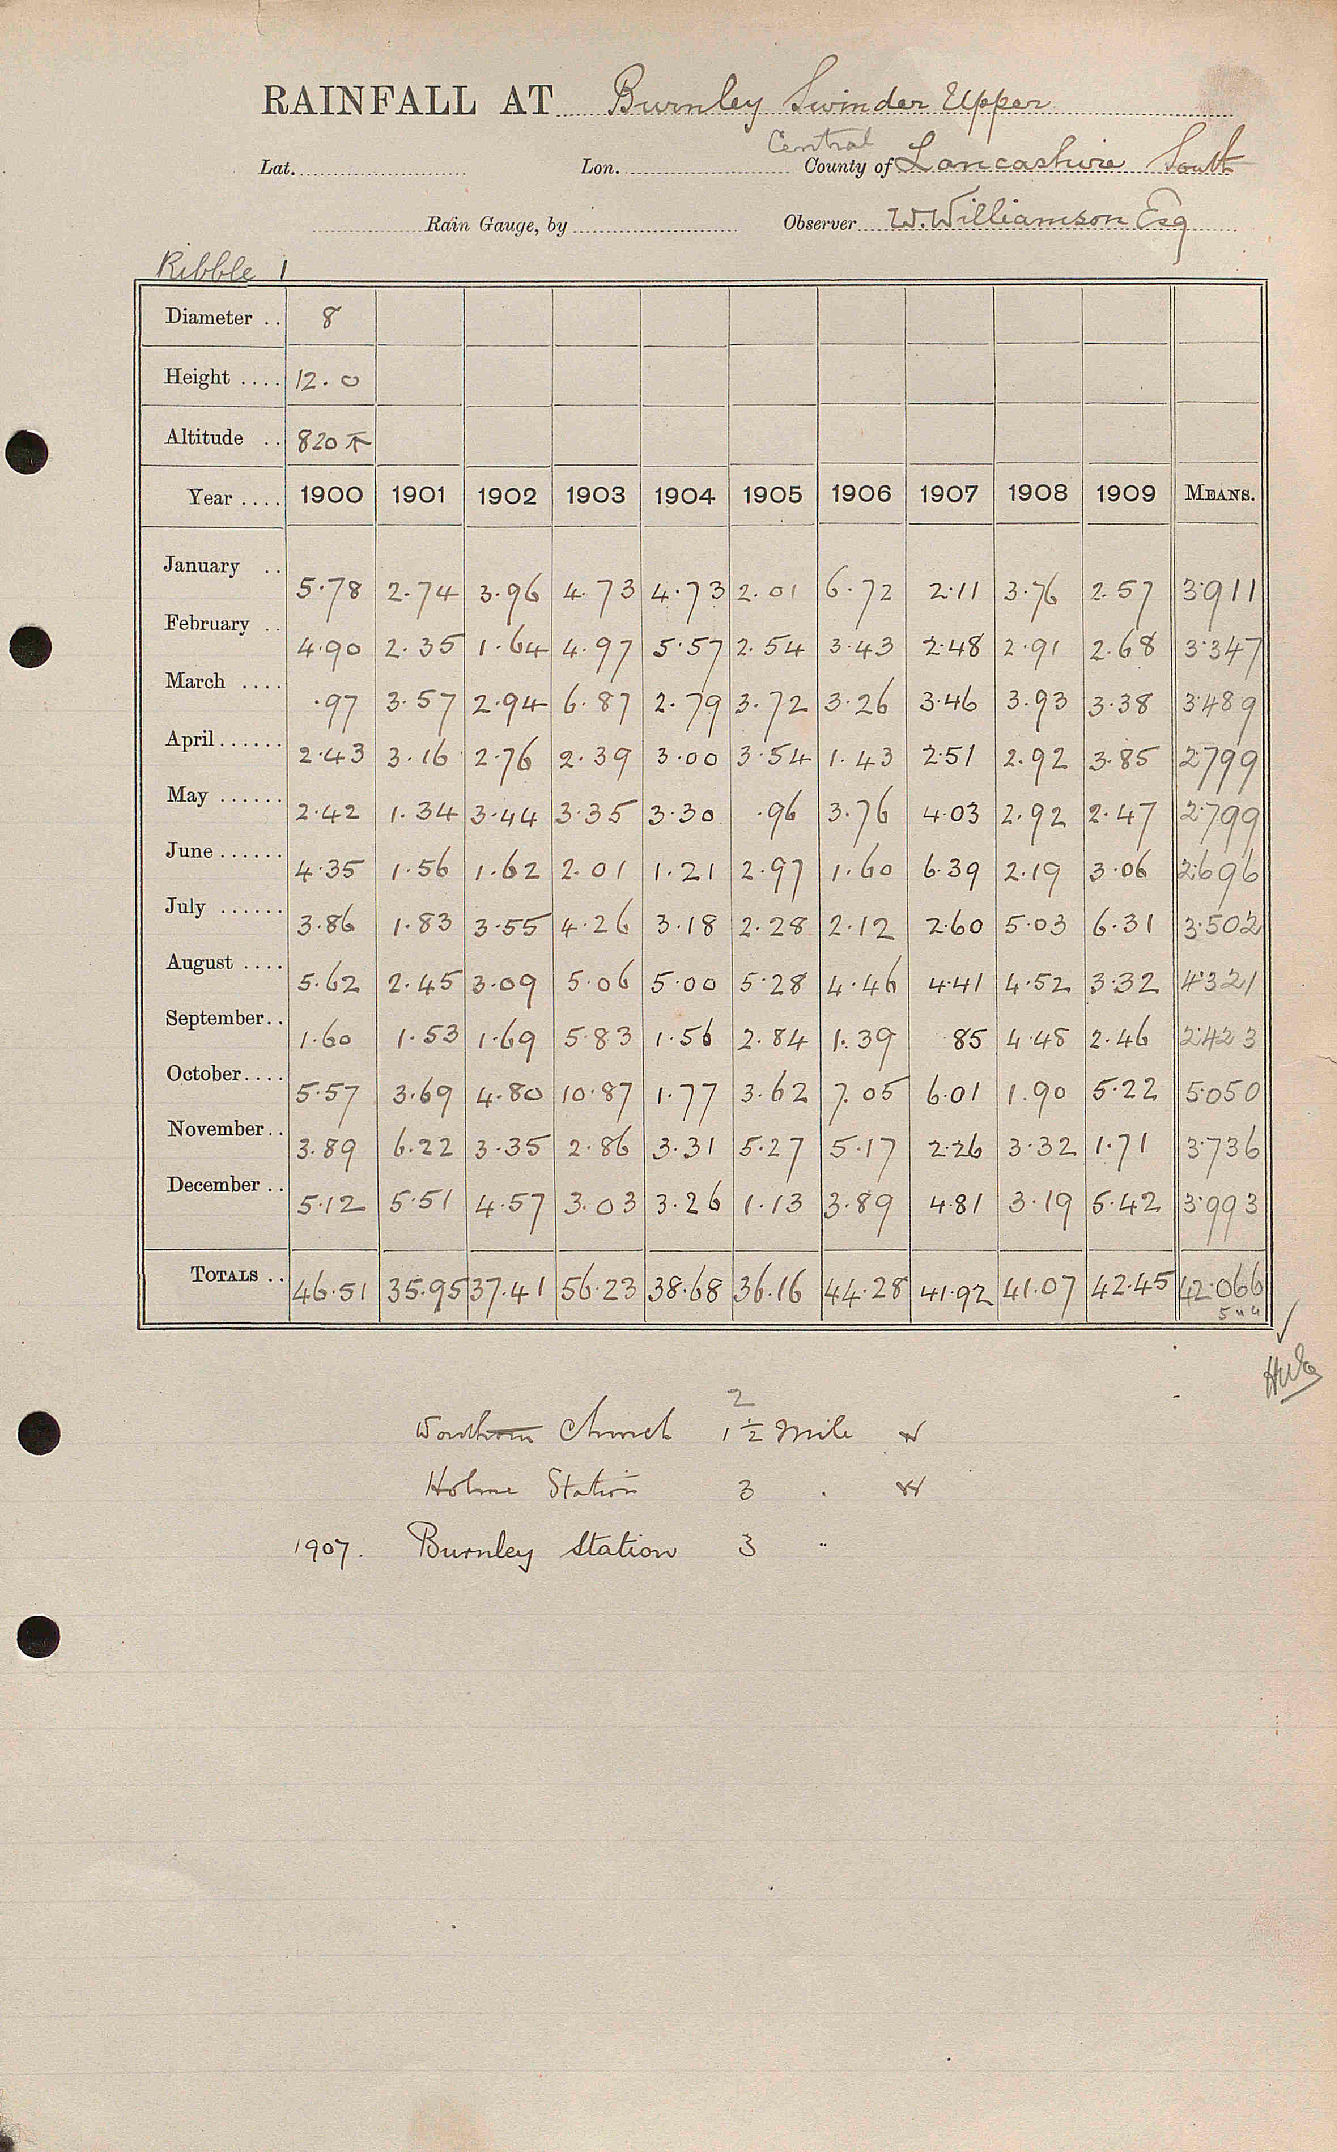 RAINFALL AT Burnley Swinden Upper
Central
Lat. Lon. County of Lancashire South
Rain Gauge, by Observer W. Williamson Esq
Ribble 1
Diameter .. 8
Height .... 12.0
Altitude .. 820
Year .... 1900 1901 1902 1903 1904 1905 1906 1907 1908 1909 MEANS.
January .. 5.78 2.74 3.96 4.73 4.73 2.01 6.72 2.11 3.76 2.57 3.911
February .. 4.90 2.35 1.64 4.97 5.57 2.54 3.43 2.48 2.91 2.68 3.347
March .... .97 3.57 2.94 6.87 2.79 3.72 3.26 3.46 3.93 3.38 3.489
April ...... 2.43 3.16 2.76 2.39 3.00 3.54 1.43 2.51 2.92 3.85 2.799
May ...... 2.42 1.34 3.44 3.35 3.30 .96 3.76 4.03 2.92 2.47 2.799
June ...... 4.35 1.56 1.62 2.01 1.21 2.97 1.60 6.39 2.19 3.06 2.696
July ...... 3.86 1.83 3.55 4.26 3.18 2.28 2.12 2.60 5.03 6.31 3.502
August .... 5.62 2.45 3.09 5.06 5.00 5.28 4.46 4.41 4.52 3.32 4.321
September .. 1.60 1.53 1.69 5.83 1.56 2.84 1.39 .85 4.48 2.46 2.423
October .... 5.57 3.69 4.80 10.87 1.77 3.62 7.05 6.01 1.90 5.22 5.050
November .. 3.89 6.22 3.35 2.86 3.31 5.27 5.17 2.26 3.32 1.71 3.736
December .. 5.12 5.51 4.57 3.03 3.26 1.13 3.89 4.81 3.19 5.42 3.993
TOTALS .. 46.51 35.95 37.41 56.23 38.68 36.16 44.28 41.92 41.07 42.45 42.066
2
Church 1½ Mile
Holme Station 3 .
1907. Burnley Station 3 "